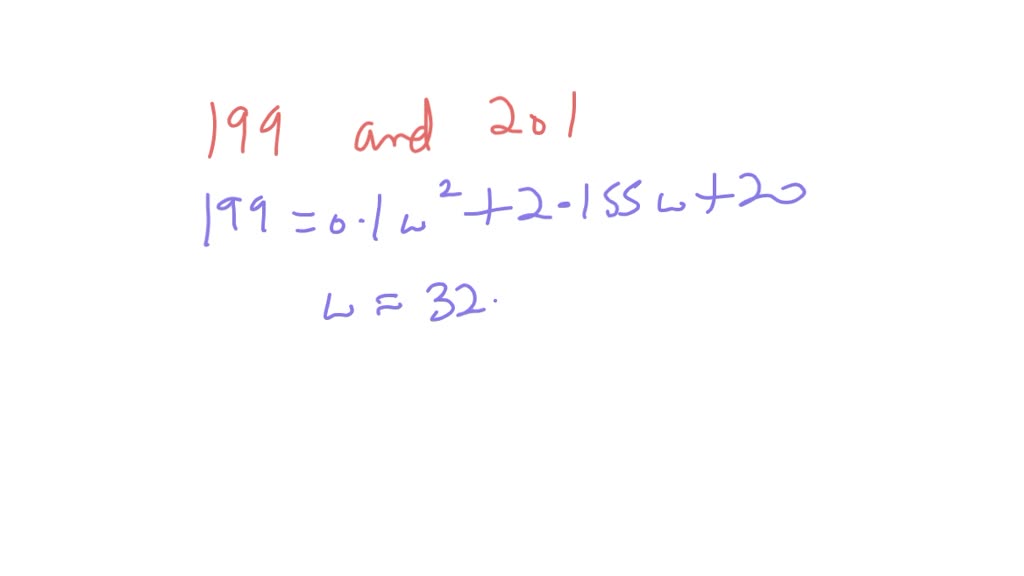 199 and 201
199 = 0.1w² + 2.155w + 20
w = 32.